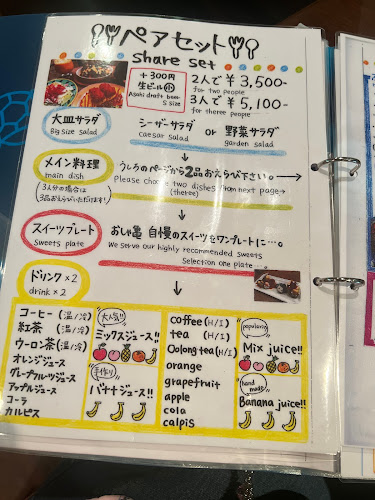 ペアセット
share set
+300円
生ビール小
Asahi draft beer
S size
2人で ¥3,500-
for two people
3人で ¥5,100-
for theree people
大皿サラダ
Big size salad
シーザーサラダ or 野菜サラダ
caesar salad garden salad
メイン料理
main dish
3人の場合は
3品おえらびいただけます!
うしろのページから2品おえらび下さい。→
Please choose two dishes from next page→
(theree)
スイーツプレート
Sweets plate
おしゃ亀 自慢のスイーツをワンプレートに…。
We serve our highly recommended sweets
Selection one plate
ドリンク×2
drink×2
コーヒー(温/冷)
紅茶(温/冷)
ウーロン茶(温/冷)
オレンジジュース
グレープフルーツジュース
アップルジュース
コーラ
カルピス
大人気!!
ミックスジュース!!
手作り
バナナジュース!!
coffee(H/I)
tea (H/I)
Oolong tea(H/I)
orange
grapefruit
apple
cola
calpis
popularity
Mix juice!!
hand made
Banana juice!!